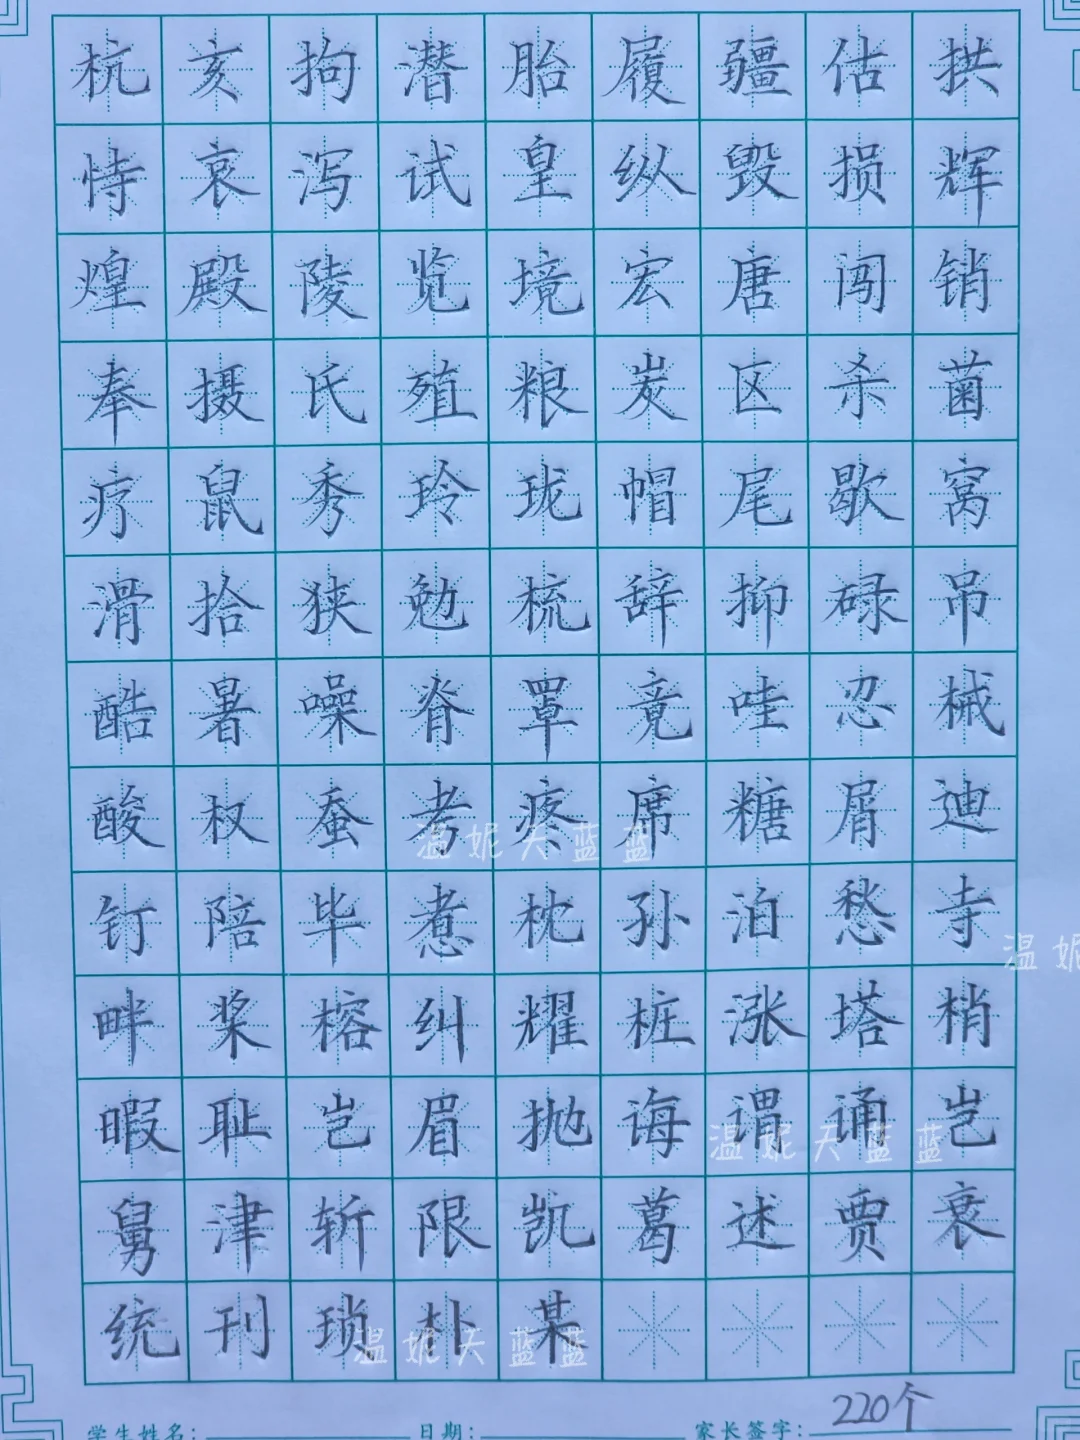 杭亥拘潜胎履疆估拱
恃哀泻试皇纵毁损辉
煌殿陵览境宏唐闯销
奉摄氏殖粮炭区杀菌
疗鼠秀玲珑帽尾歇窝
滑拾狭勉梳辞抑碌吊
酷暑噪脊罩竟哇忍械
酸权蚕考疼席糖屑迪
温妮天蓝蓝
钉陪毕惹枕孙泊愁寺
温妮
畔桨榕纠耀桩涨塔梢
暇耻岂眉抛诲谓诵岂
温妮天蓝蓝
舅津斩限凯葛述贾衰
统刊琐朴某
温妮天蓝蓝
220个
学生姓名: 日期: 家长签字: